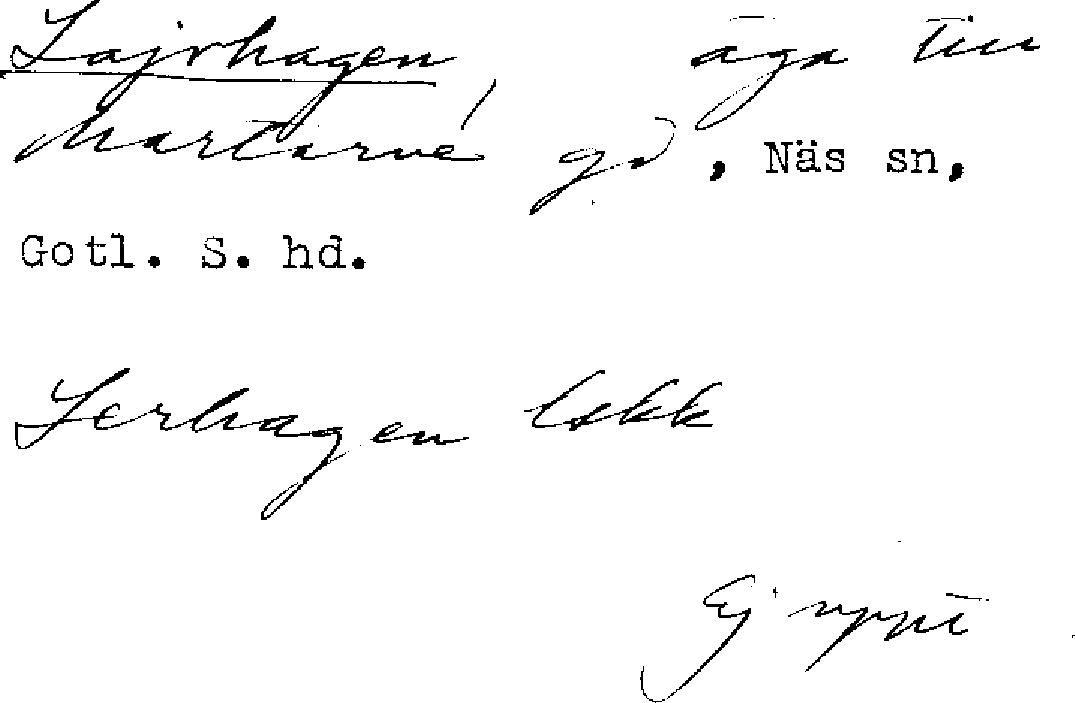 Lajrhagen, äga till
Martarve gd, Näs sn,
Gotl. S. hd.
Lerhagen Lskk
Ej uppt